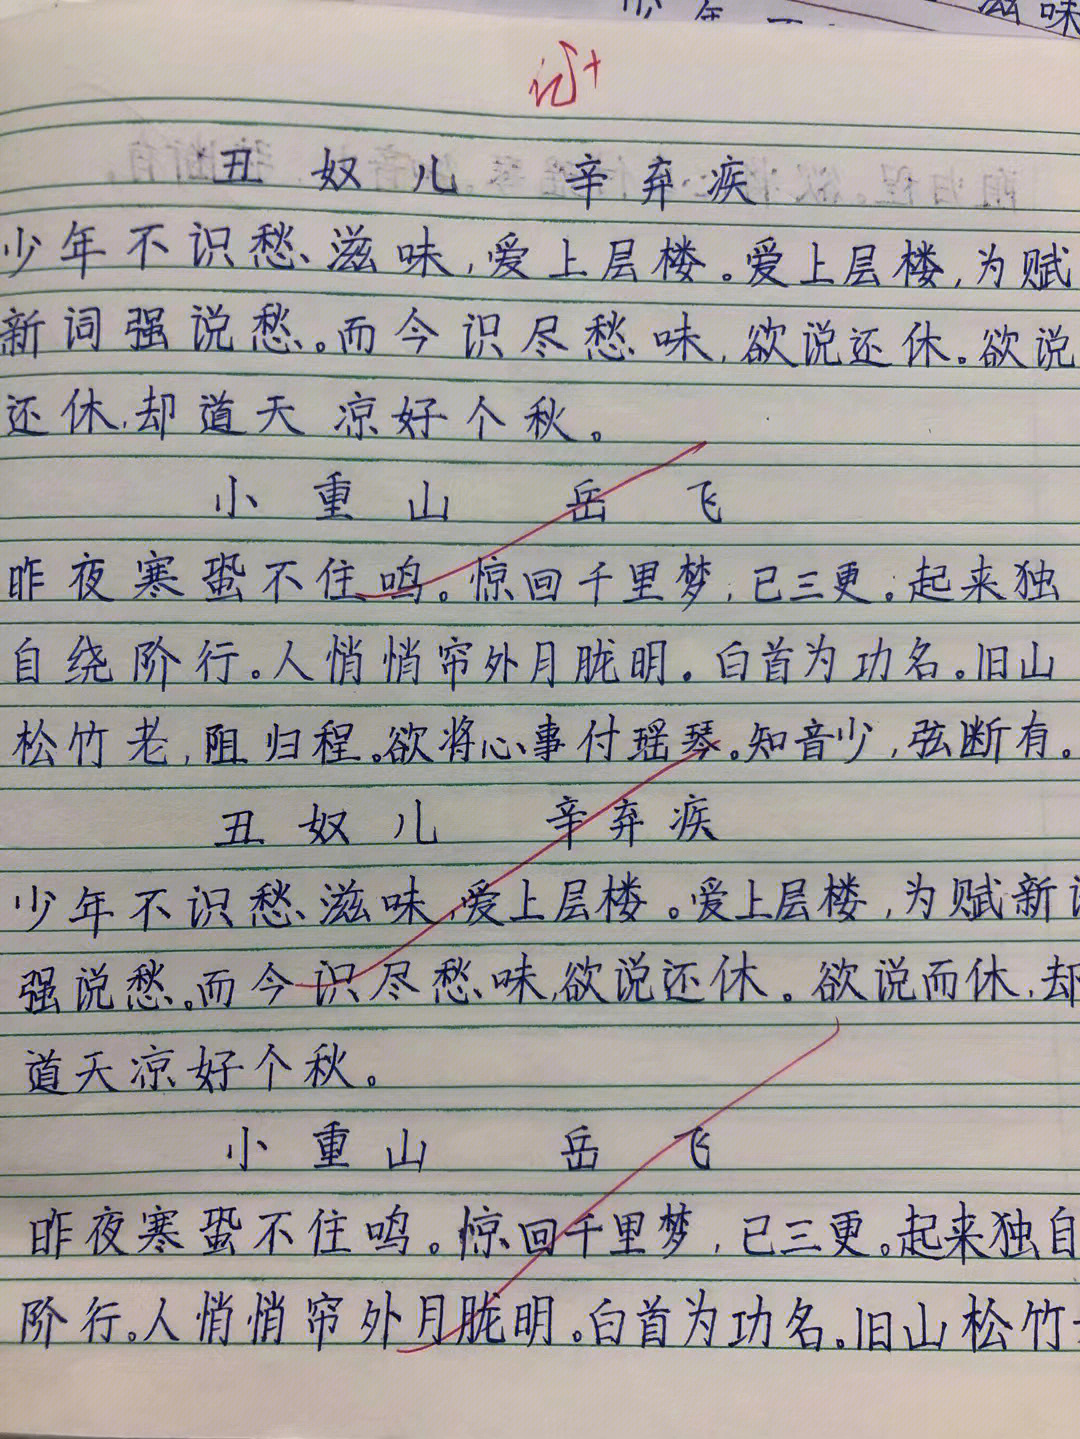 少年 滋味
记+
丑奴儿 辛弃疾
少年不识愁滋味,爱上层楼。爱上层楼,为赋
新词强说愁。而今识尽愁味,欲说还休。欲说
还休,却道天凉好个秋。
小重山 岳飞
昨夜寒蛩不住鸣。惊回千里梦,已三更。起来独
自绕阶行。人悄悄帘外月胧明。白首为功名。旧山
松竹老,阻归程。欲将心事付瑶琴。知音少,弦断有。
丑奴儿 辛弃疾
少年不识愁滋味,爱上层楼。爱上层楼,为赋新
强说愁。而今识尽愁味,欲说还休。欲说而休,却
道天凉好个秋。
小重山 岳飞
昨夜寒蛩不住鸣。惊回千里梦,已三更。起来独自
阶行。人悄悄帘外月胧明。白首为功名。旧山松竹